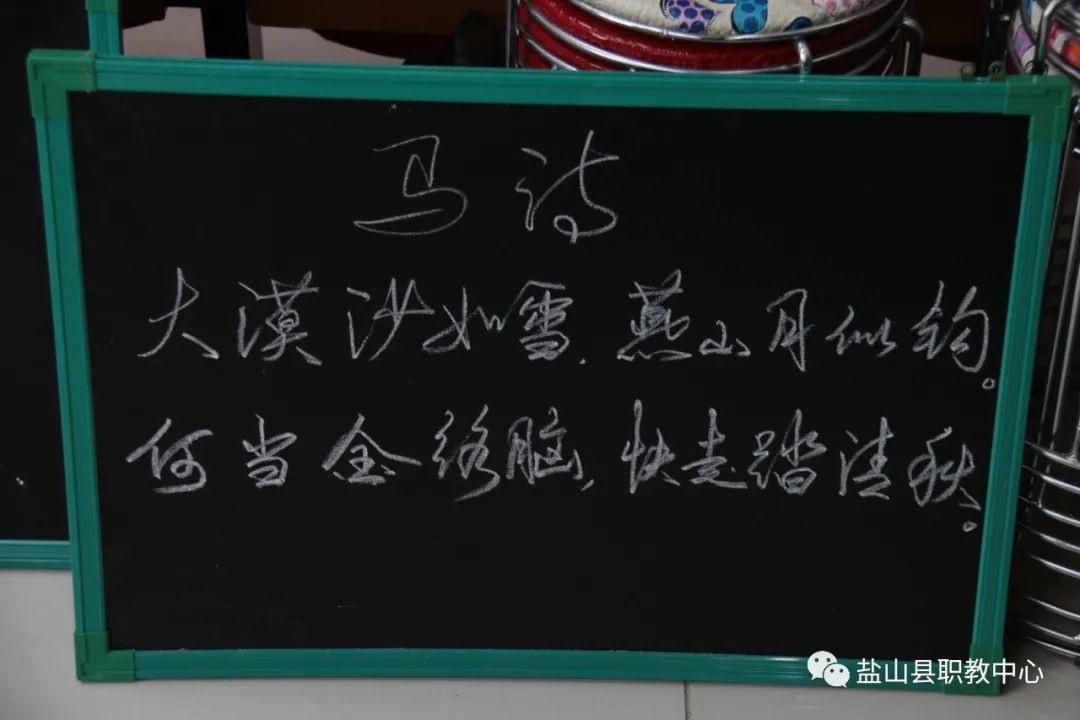 马诗
大漠沙如雪,燕山月似钩。
何当金络脑,快走踏清秋。
盐山县职教中心